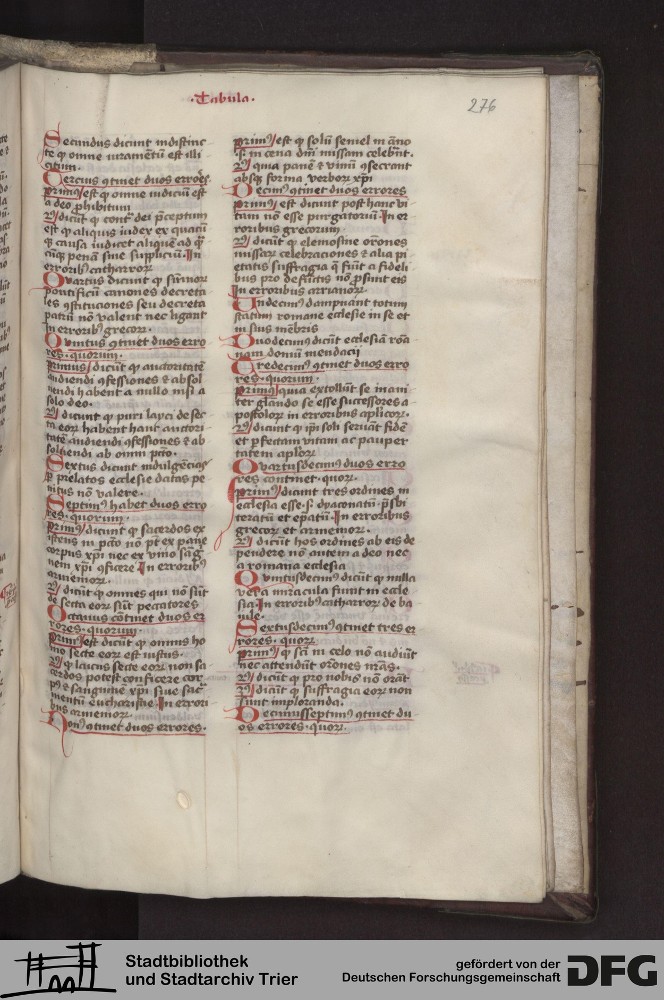 ·Tabula·
276
Secundus dicunt indistinc
te ꝙ omne iuramentū est illi
citum·
Tercius ꝯtinet duos errores
primꝰ est ꝙ omne iudiciū est
a deo ꝓhibitum
2ꝰ dicūt ꝙ contͣ dei p̄ceptum
est ꝙ aliquis iudex ex quacū
qꝫ causa iudicet aliquē ad q̄
cūqꝫ penā siue suppliciū· In
erroribꝰ catharroꝝ
Quartus dicunt ꝙ sūmoꝝ
pontificū canones decreta
les ꝯstituciones seu decreta
patrū nō valent nec ligant
in erroribꝰ grecoꝝ·
Quintus ꝯtinet duos erro
res· quorum·
Primus dicūt ꝙ auctoritatē
audiendi ꝯfessiones et absol
uendi habent a nullo nisi a
solo deo·
2ꝰ dicunt ꝙ puri layci de sec
ta eoꝝ habent hanc auctori
tatē audiendi ꝯfessiones et ab
soluendi ab omni pctō·
Sextus dicunt indulgēcias
ꝑ prelatos ecclesie datas pe
nitus nō valere·
Septimꝰ habet duos erro
res· quorum·
Primꝰ dicunt ꝙ sacerdos ex
istens in pctō nō pt̄ ex pane
corpus xp̄i nec ex vino sāg
nem xp̄i ꝯficere In erroribꝰ
armenioꝝ·
2ꝰ dicūt ꝙ omnes qui nō sūt
de secta eoꝝ sūt peccatores
Octauus cōtinet duos er
rores· quorum·
Primꝰ est dicūt ꝙ omnis ho
mo secte eoꝝ est iustus·
2ꝰ ꝙ laicus secte eoꝝ non sa
cerdos potest conficere cor
pꝰ et sanguinē xp̄i siue sac̄
mentū eucharistie· In errori
bus armenioꝝ
Nonꝰ ꝯtinet duos errores·
primꝰ est ꝙ solū semel in āno
·s· in cena dn̄i missam celebrāt·
2ꝰ quia panē et vinū ꝯsecrant
absqꝫ forma verboꝝ xp̄i
Decimꝰ ꝯtinet duos errores
primꝰ est dicunt post hanc vi
tam nō esse purgatoriū· In er
roribus grecorum
2ꝰ dicūt ꝙ elemosine orōnes
missaꝝ celebraciones et alia pi
etatis suffragia q̄ fiūt a fideli
bus pro defūctis nō ꝓsunt eis
In erroribus arrianoꝝ·
Undecimꝰ dampnant totum
statum romane ecclesie in se et
in suis mēbris
Duodecimꝰ dicūt ecclesiā roā
nam domū mendacij
Tredecimꝰ ꝯtinet duos erro
res· quorum·
Primꝰ quia extollūt se inani
ter glando se esse successores a
postoloꝝ in erroribus aplicoꝝ·
2ꝰ dicunt ꝙ ip̄i soli seruāt fidē
et ꝑfectam vitam ac pauper
tatem aploꝝ
Quartusdecimꝰ duos erro
res continet· quoꝝ·
primꝰ dicunt tres ordines in
ecclesia esse· s· dyaconatū· p̄sbi
teratū et ep̄atū· In erroribus
grecoꝝ et armenioꝝ·
2ꝰ dicūt hos ordines ab eis de
pendere nō autem a deo nec
a romana ecclesia
Quintusdecimꝰ dicūt ꝙ nulla
vera miracula fiunt in eccle
sia· In erroribꝰ catharroꝝ de ba
Sextusdecimꝰ ꝯtinet tres er
rores· quoꝝ
Primꝰ ꝙ sc̄i in celo nō audiūt
nec attendūt orōnes nr̄as·
2ꝰ dicūt ꝙ pro nobis nō orāt
3ꝰ dicūt ꝙ suffragia eoꝝ non
sunt imploranda·
Decimusseptimꝰ ꝯtinet du
os errores· quoꝝ·
Stadtbibliothek
und Stadtarchiv Trier
gefördert von der
Deutschen Forschungsgemeinschaft
DFG